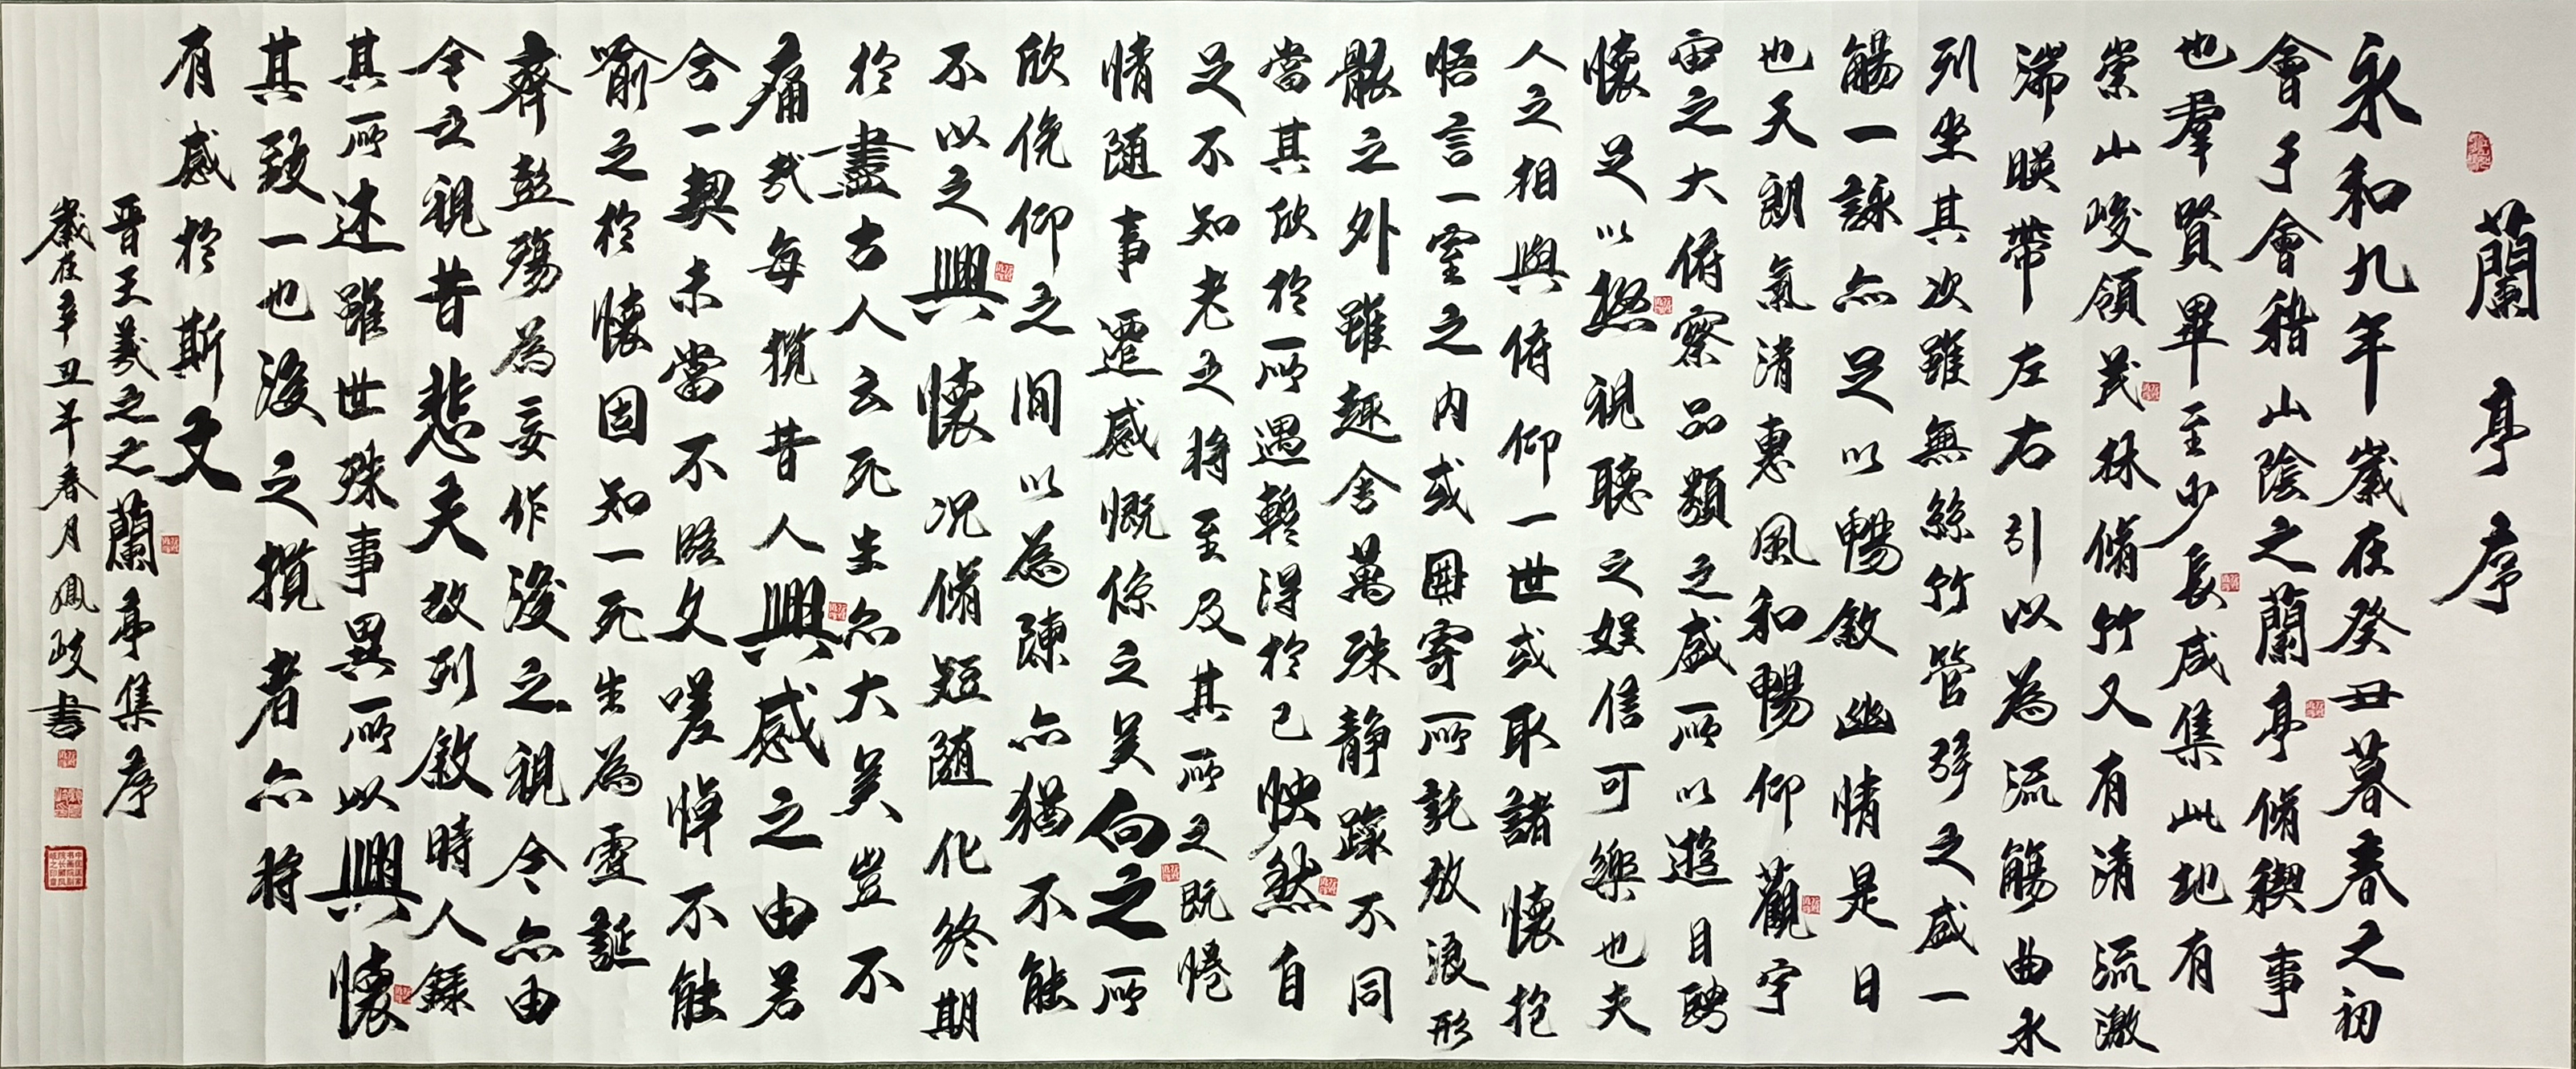 蘭亭序
永和九年歲在癸丑暮春之初
會于會稽山陰之蘭亭脩稧事
也羣賢畢至少長咸集此地有
崇山峻領茂林脩竹又有清流激
湍暎帶左右引以為流觴曲水
列坐其次雖無絲竹管弦之盛一
觴一詠亦足以暢敘幽情是日
也天朗氣清惠風和暢仰觀宇
宙之大俯察品類之盛所以遊目騁
懷足以極視聽之娛信可樂也夫
人之相與俯仰一世或取諸懷抱
悟言一室之內或因寄所託放浪形
骸之外雖趣舍萬殊靜躁不同
當其欣於所遇暫得於己怏然自
足不知老之將至及其所之既惓
情隨事遷感慨係之矣向之所
欣俛仰之間以為陳亦猶不能
不以之興懷況脩短隨化終期
於盡古人云死生亦大矣豈不
痛哉每攬昔人興感之由若
合一契未嘗不臨文嗟悼不能
喻之於懷固知一死生為虛誕
齊彭殤為妄作後之視今亦由
今之視昔悲夫故列敘時人錄
其所述雖世殊事異所以興懷
其致一也後之攬者亦將
有感於斯文
晉王羲之之蘭亭集序
歲在辛丑年春月鳳岐書